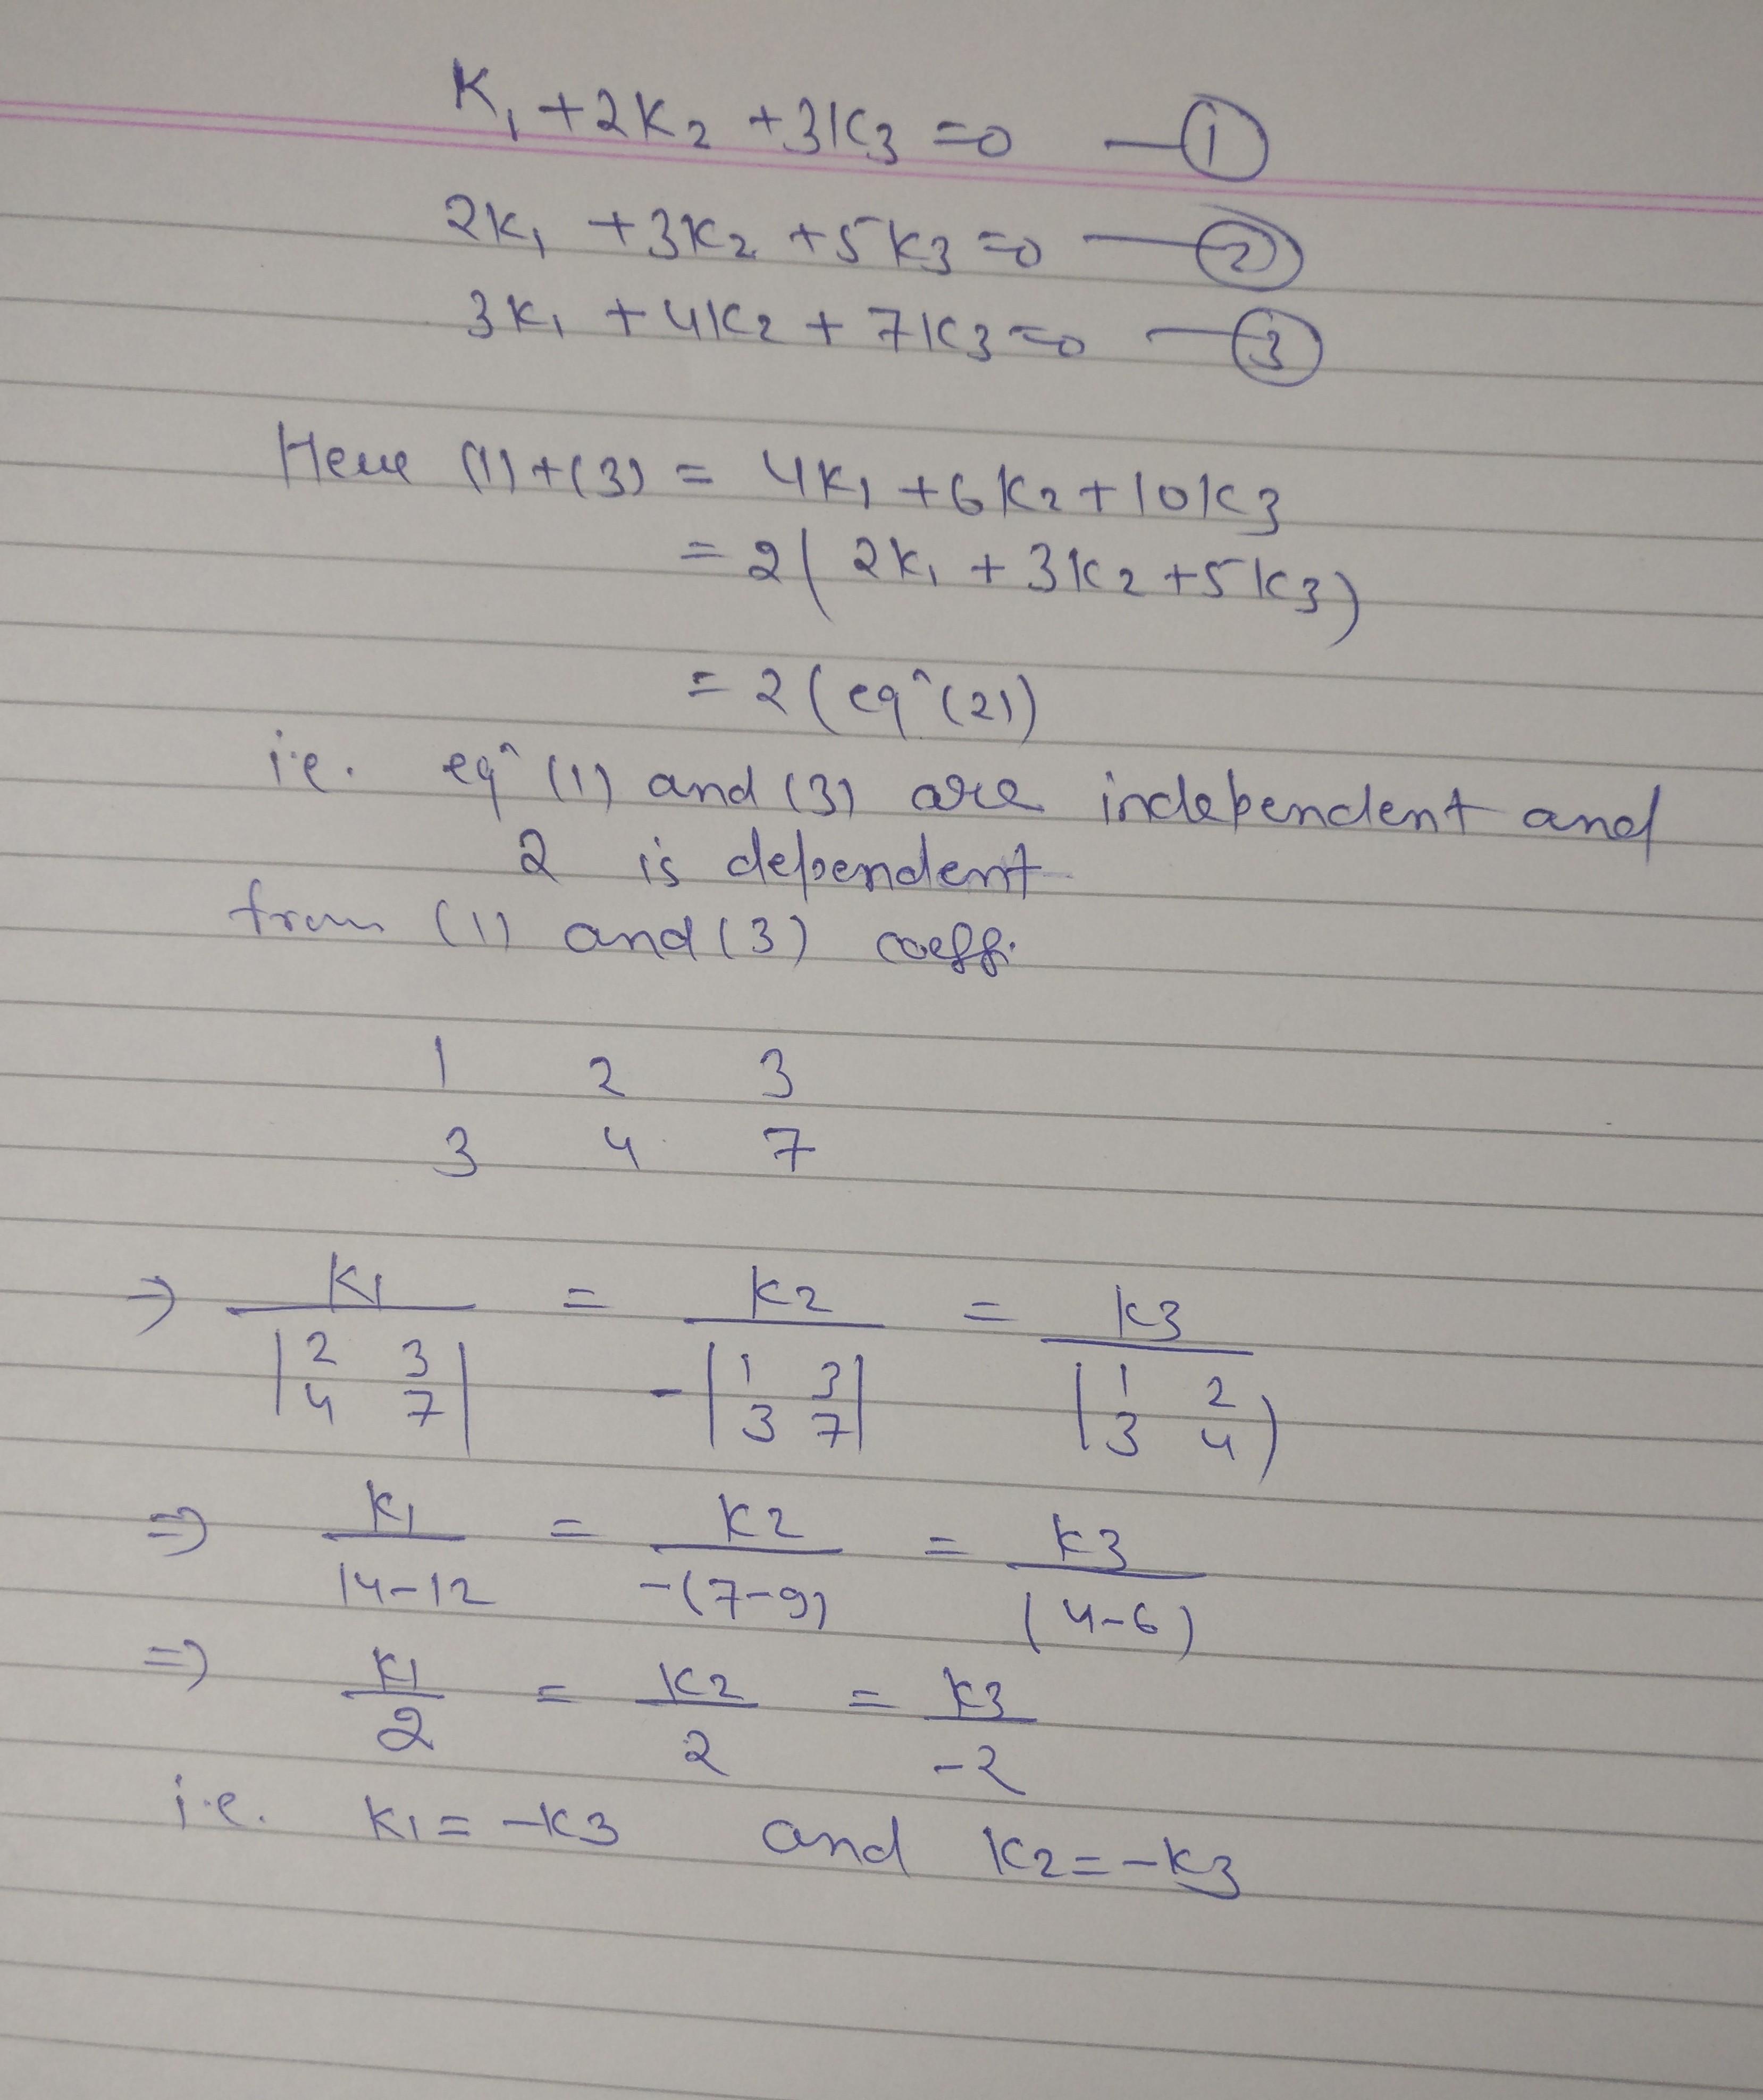 K₁ + 2K₂ + 3K₃ = 0 — ①
2K₁ + 3K₂ + 5K₃ = 0 — ②
3K₁ + 4K₂ + 7K₃ = 0 — ③
Here (1) + (3) = 4K₁ + 6K₂ + 10K₃
= 2( 2K₁ + 3K₂ + 5K₃)
= 2 (eqⁿ (2))
i.e. eqⁿ (1) and (3) are independent and
2 is dependent
from (1) and (3) coeffi.
1 2 3
3 4 7
⇒ K₁ / |2 3; 4 7| = K₂ / -|1 3; 3 7| = K₃ / |1 2; 3 4)
⇒ K₁ / 14-12 = K₂ / -(7-9) = K₃ / (4-6)
⇒ K₁ / 2 = K₂ / 2 = K₃ / -2
i.e. K₁ = -K₃ and K₂ = -K₃